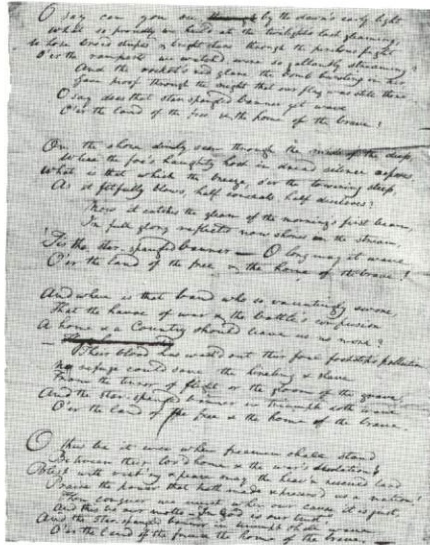 O say can you see by the dawn's early light
What so proudly we hail'd at the twilight's last gleaming,
Whose broad stripes & bright stars through the perilous fight
O'er the ramparts we watch'd, were so gallantly streaming?
And the rocket's red glare, the bomb bursting in air,
Gave proof through the night that our flag was still there
O say does that star-spangled banner yet wave
O'er the land of the free & the home of the brave?
On the shore dimly seen through the mists of the deep,
Where the foe's haughty host in dread silence reposes,
What is that which the breeze, o'er the towering steep,
As it fitfully blows, half conceals, half discloses?
Now it catches the gleam of the morning's first beam,
In full glory reflected now shines in the stream,
'Tis the star-spangled banner — O long may it wave
O'er the land of the free & the home of the brave!
And where is that band who so vauntingly swore,
That the havoc of war & the battle's confusion
A home & a Country should leave us no more?
Their blood has wash'd out their foul footsteps pollution
No refuge could save the hireling & slave
From the terror of flight or the gloom of the grave,
And the star-spangled banner in triumph doth wave
O'er the land of the free & the home of the brave.
O thus be it ever when freemen shall stand
Between their lov'd home & the war's desolation!
Blest with vict'ry & peace may the heav'n rescued land
Praise the power that hath made & preserv'd us a nation!
Then conquer we must, when our cause it is just,
And this be our motto — In God is our trust,
And the star-spangled banner in triumph shall wave
O'er the land of the free & the home of the brave. —